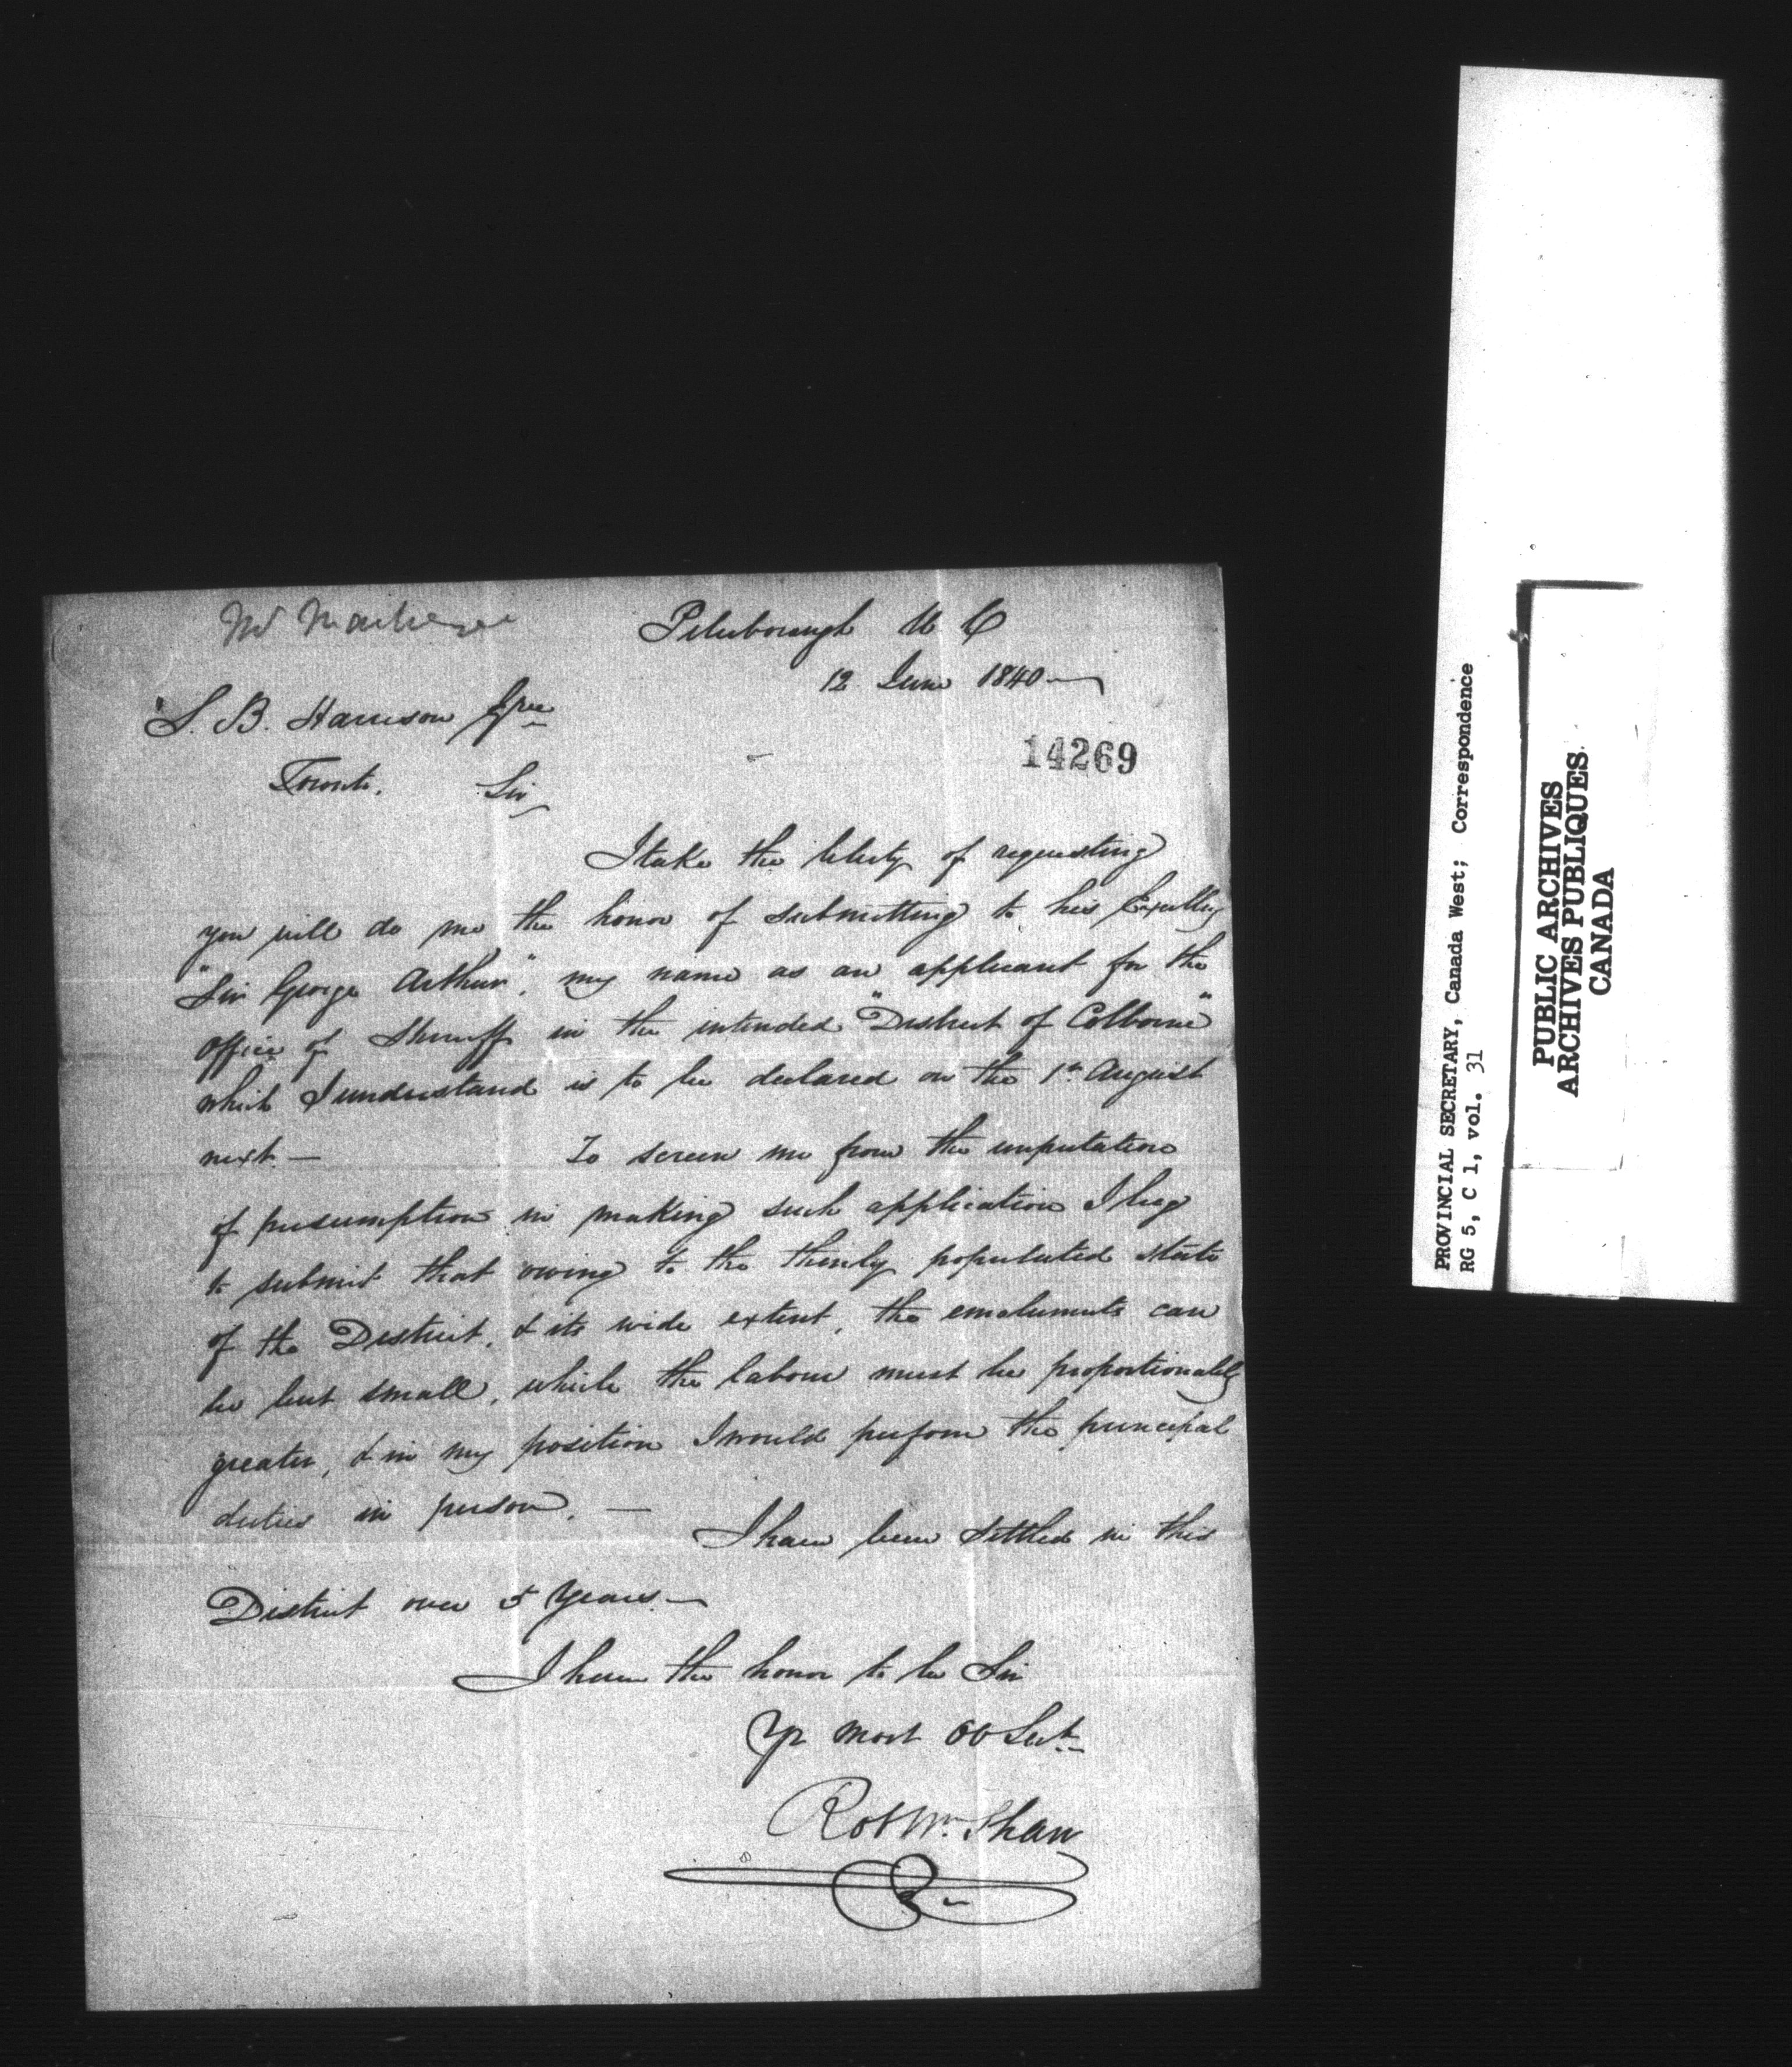 Peterborough U C
12 June 1840
S. B. Harrison Esqre
14269
Toronto. Sir
I take the liberty of requesting
you will do me the honor of submitting to his Excellcy
"Sir George Arthur", my name as an applicant for the
office of Sheriff in the intended "District of Colborne"
which I understand is to be declared on the 1st August
next — To screen me from the imputation
of presumption in making such application I beg
to submit that owing to the thinly populated state
of the District, & its wide extent, the emoluments can
be but small, while the labour must be proportionably
greater, & in my position I would perform the principal
duties in person. —
I have been settled in this
District over 5 Years —
I have the honor to be Sir
Yr most Ob Sert
Robt Wm Shaw
PROVINCIAL SECRETARY, Canada West; Correspondence
RG 5, C 1, vol. 31
PUBLIC ARCHIVES
ARCHIVES PUBLIQUES
CANADA